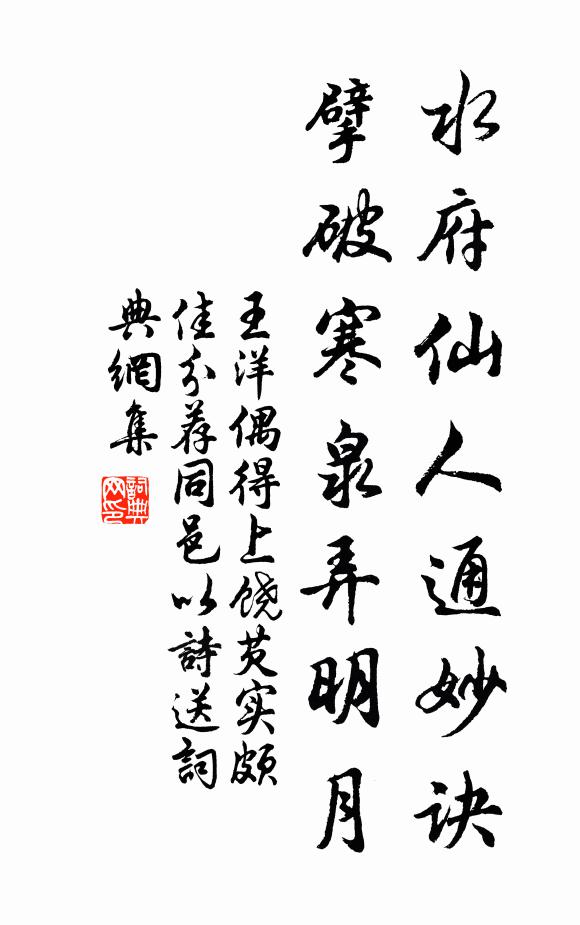 水府仙人通妙诀
擘破寒泉弄明月
王洋偶得上饶芡实颇
佳分荐同邑以詩送詞
典網集
詞典网印